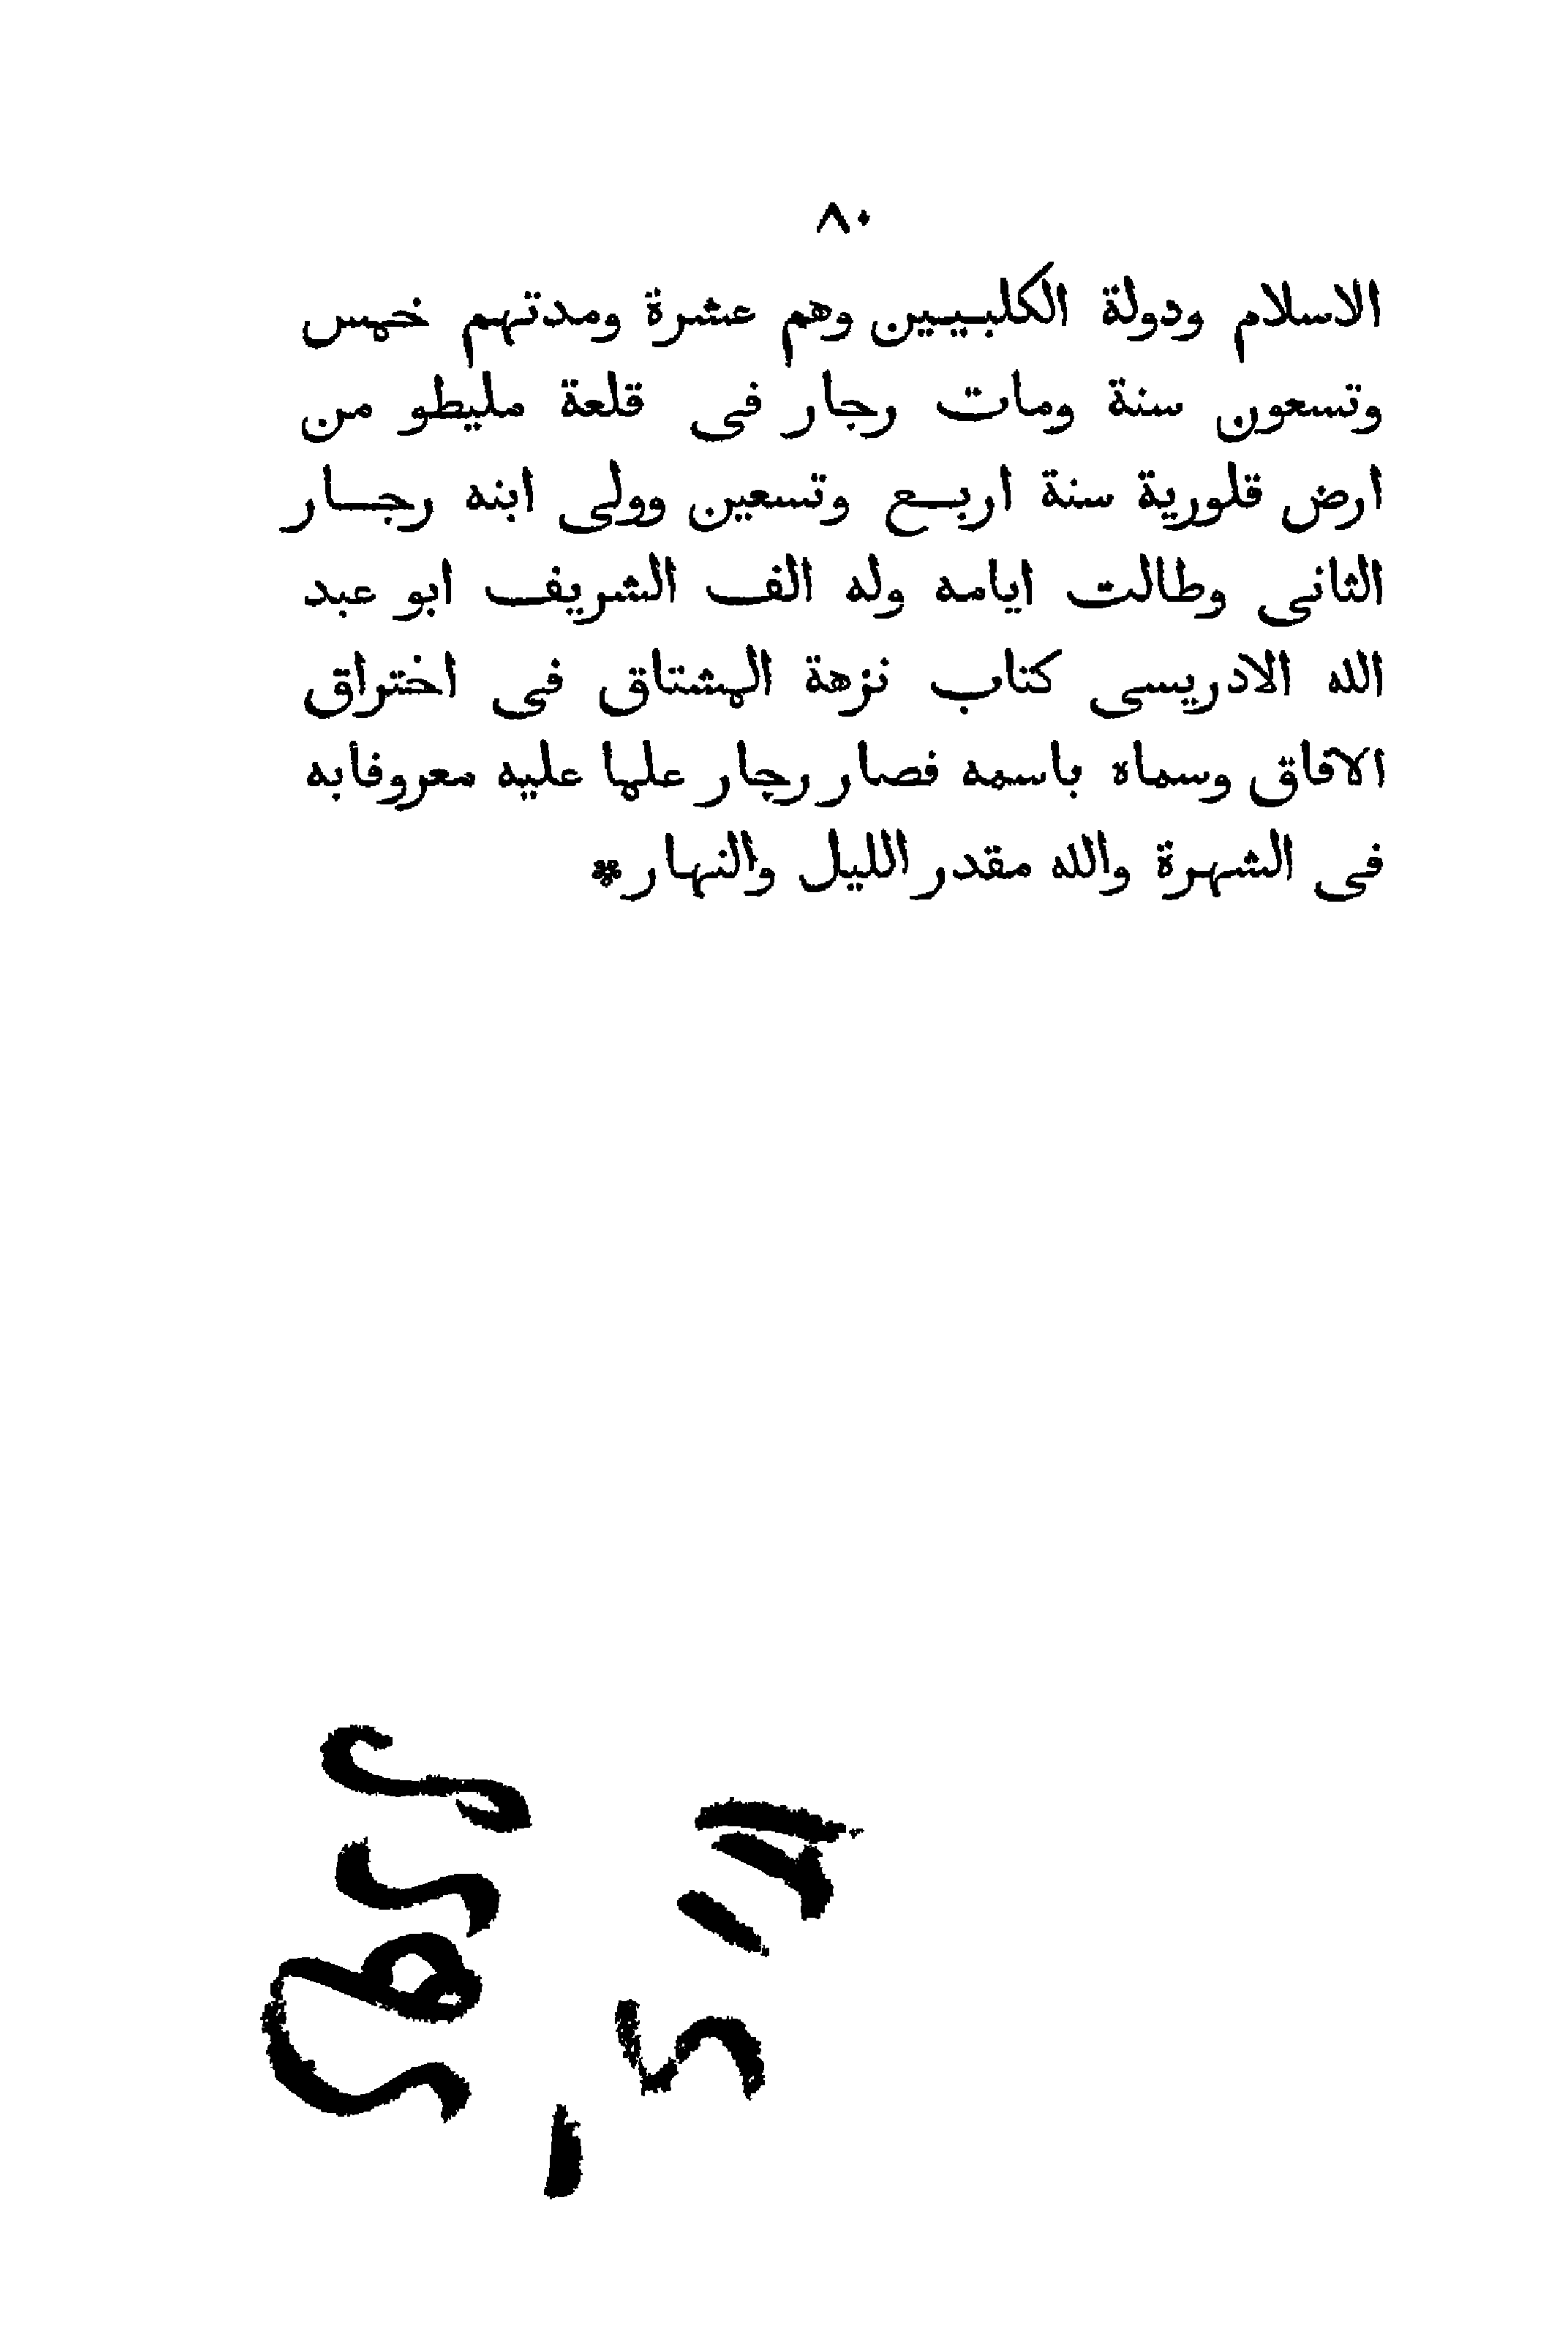 ٨٠
الاسلام ودولة الكلبيين وهم عشرة ومدتهم خمس
وتسعون سنة ومات رجار فى قلعة مليطو من
ارض قلورية سنة اربع وتسعين وولى ابنه رجار
الثانى وطالت ايامه وله الف الشريف ابو عبد
الله الادريسى كتاب نزهة المشتاق فى اختراق
الافاق وسماه باسمه فصار رجار علما عليه معروفا به
فى الشهرة والله مقدر الليل والنهار*